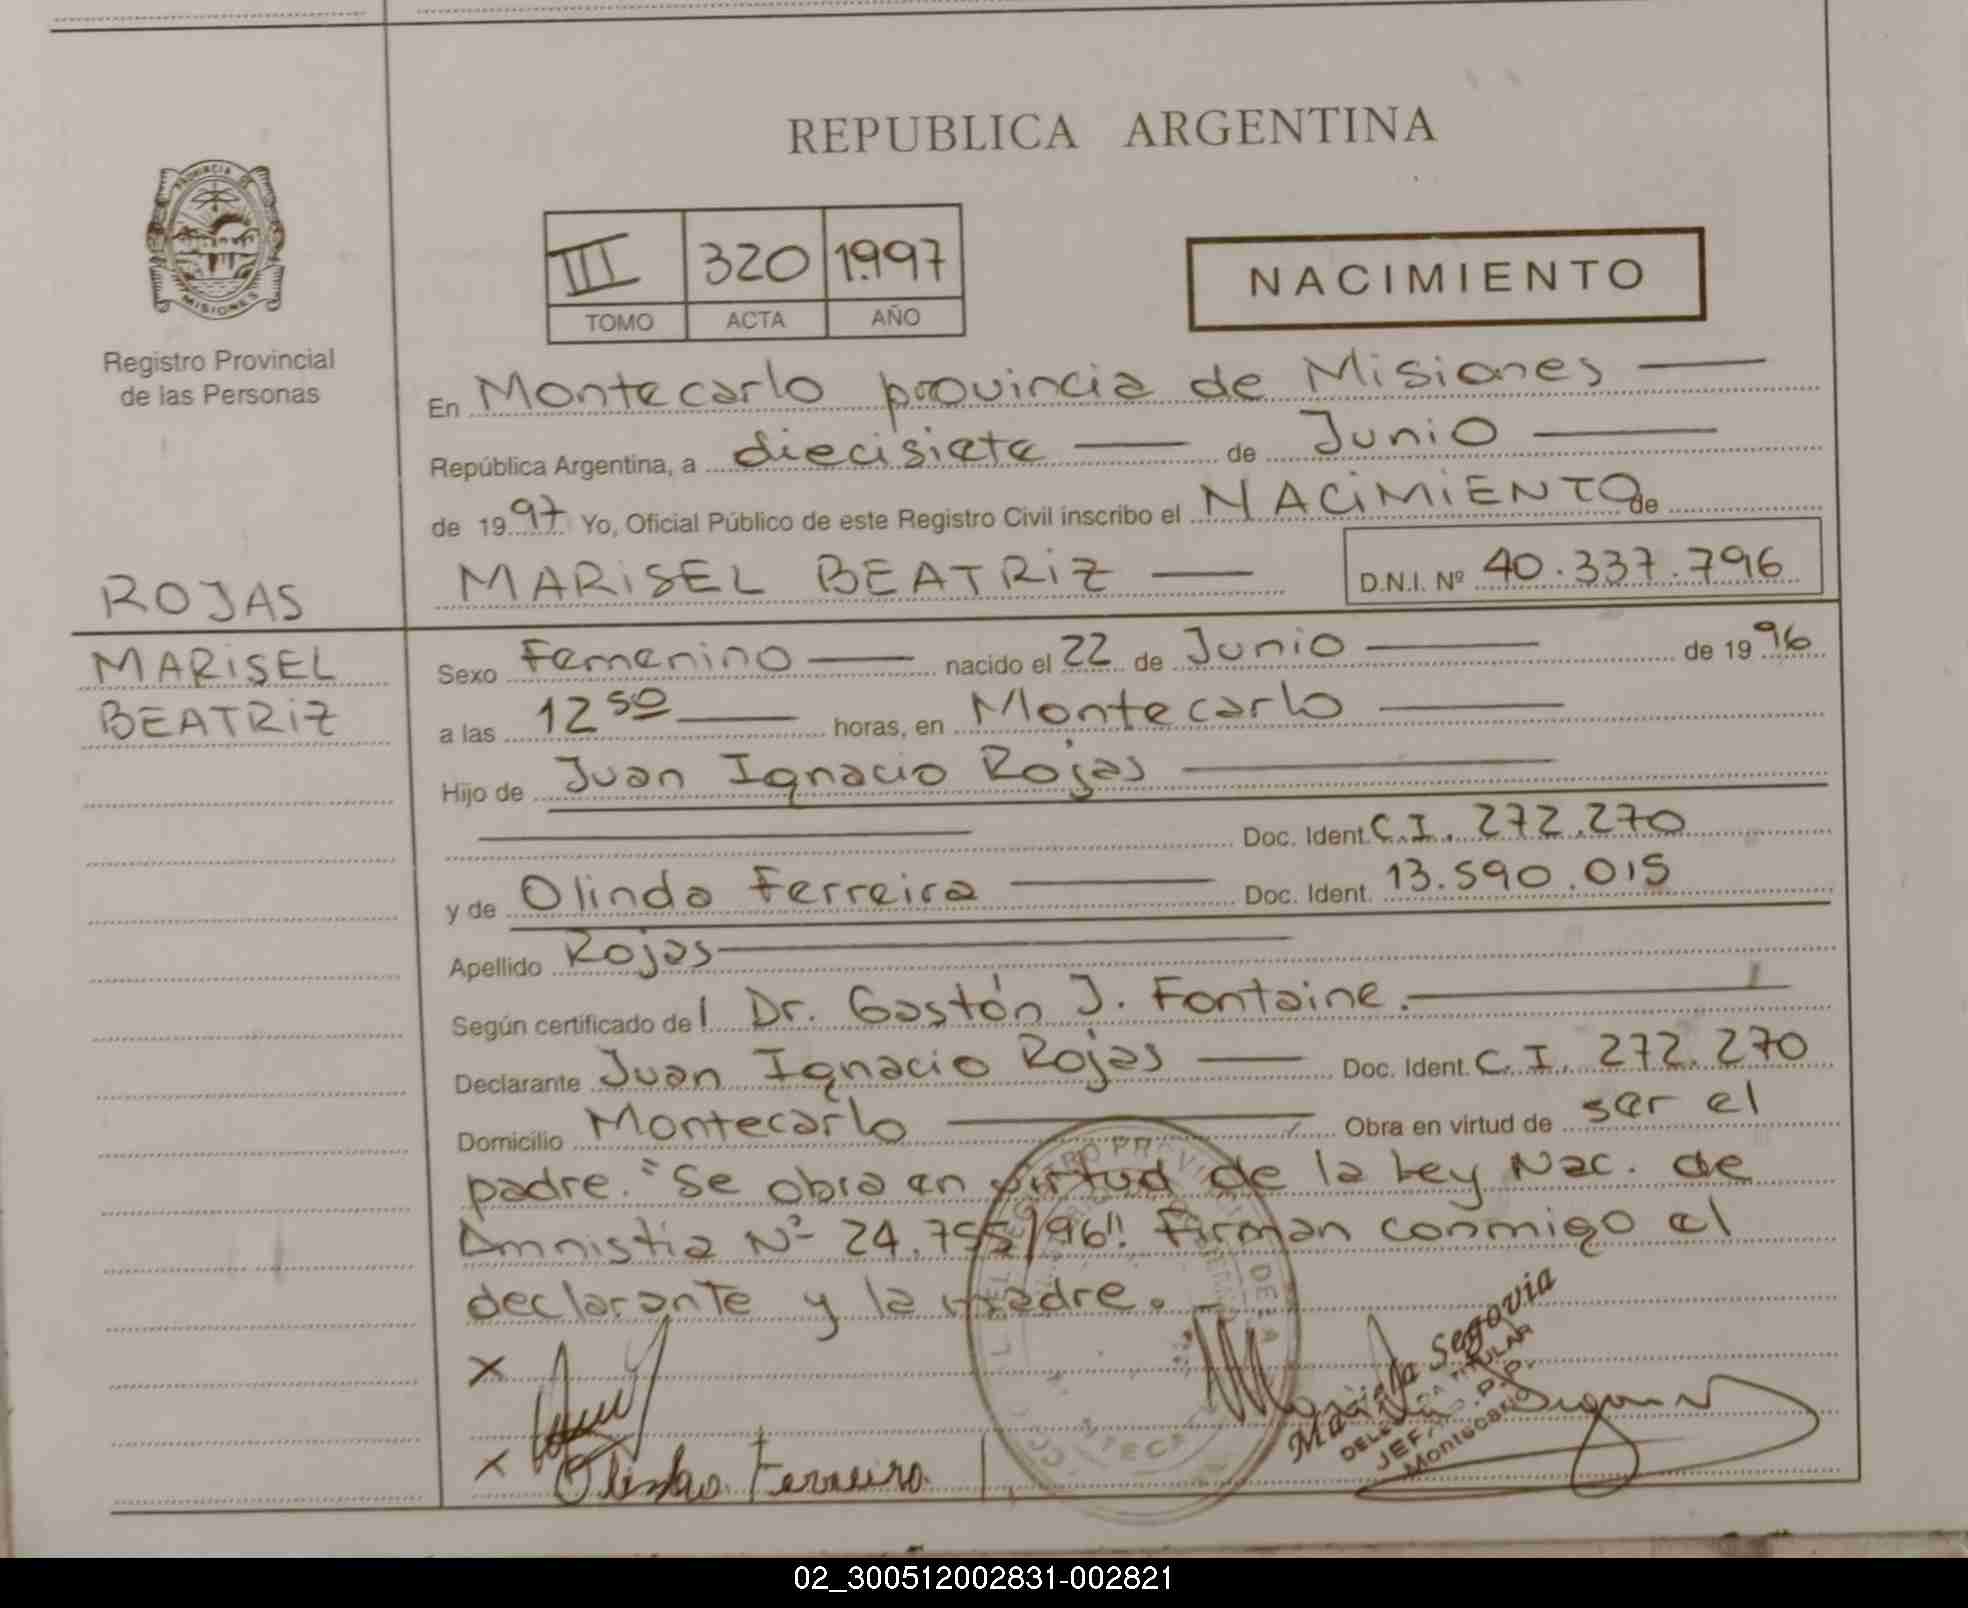 REPUBLICA ARGENTINA
PROVINCIA DE
MISIONES
Registro Provincial
de las Personas
III 320 1.997
TOMO ACTA AÑO
NACIMIENTO
En Montecarlo provincia de Misiones
República Argentina, a diecisiete de Junio
de 1997 Yo, Oficial Público de este Registro Civil inscribo el NACIMIENTO de
MARISEL BEATRIZ D.N.I. Nº 40.337.796
ROJAS
MARISEL
BEATRIZ
Sexo Femenino nacido el 22 de Junio de 1996
a las 12 50 horas, en Montecarlo
Hijo de Juan Ignacio Rojas
Doc. Ident. C.I. 272.270
y de Olinda Ferreira Doc. Ident. 13.590.015
Apellido Rojas
Según certificado del Dr. Gastón J. Fontaine.
Declarante Juan Ignacio Rojas Doc. Ident. C.I. 272.270
Domicilio Montecarlo Obra en virtud de ser el
padre. "Se obra en virtud de la Ley Nac. de
Amnistia Nº 24.755/96". Firman conmigo el
declarante y la madre.
x
x Olinda Ferreira
Segovia
TITULAR
Montecarlo
02_300512002831-002821